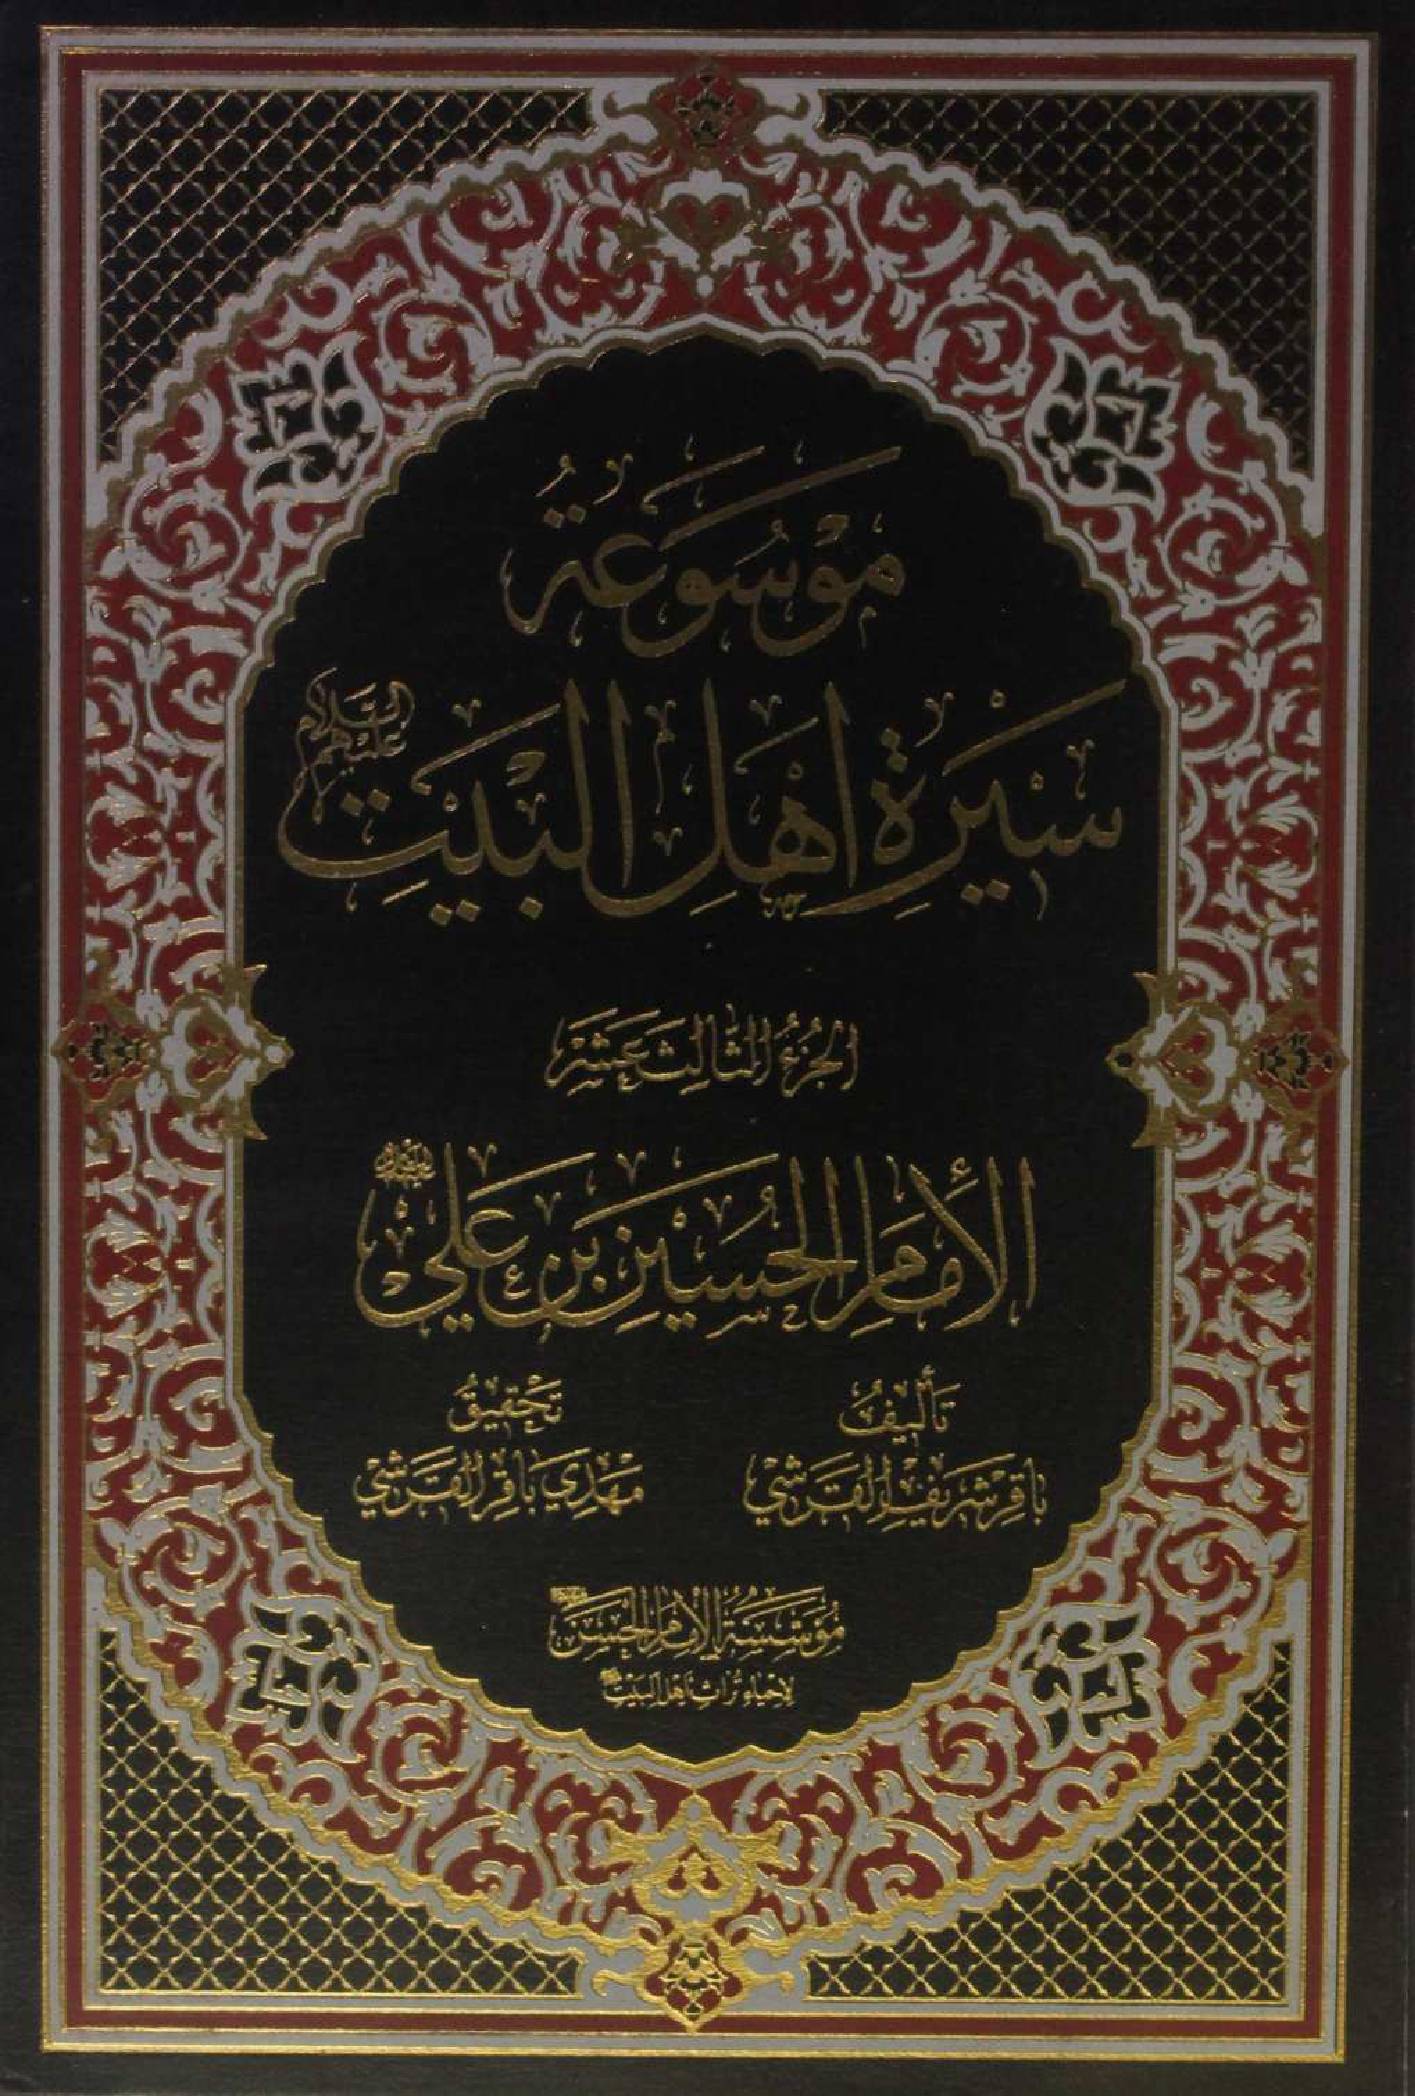 مَوْسُوعَةُ
سِيرَةِ أَهْلِ الْبَيْتِ عَلَيْهِمُ السَّلَام
الجُزْءُ الثَّالِثَ عَشَر
الإِمَامُ الحُسَيْنُ بْنُ عَلِيٍّ
تَأْلِيفُ
بَاقِر شَرِيف القَرَشِي
تَحْقِيقُ
مَهْدِي بَاقِر القَرَشِي
مُؤَسَّسَةُ الإِمَامِ الحَسَنِ
لِإِحْيَاءِ تُرَاثِ أَهْلِ البَيْتِ